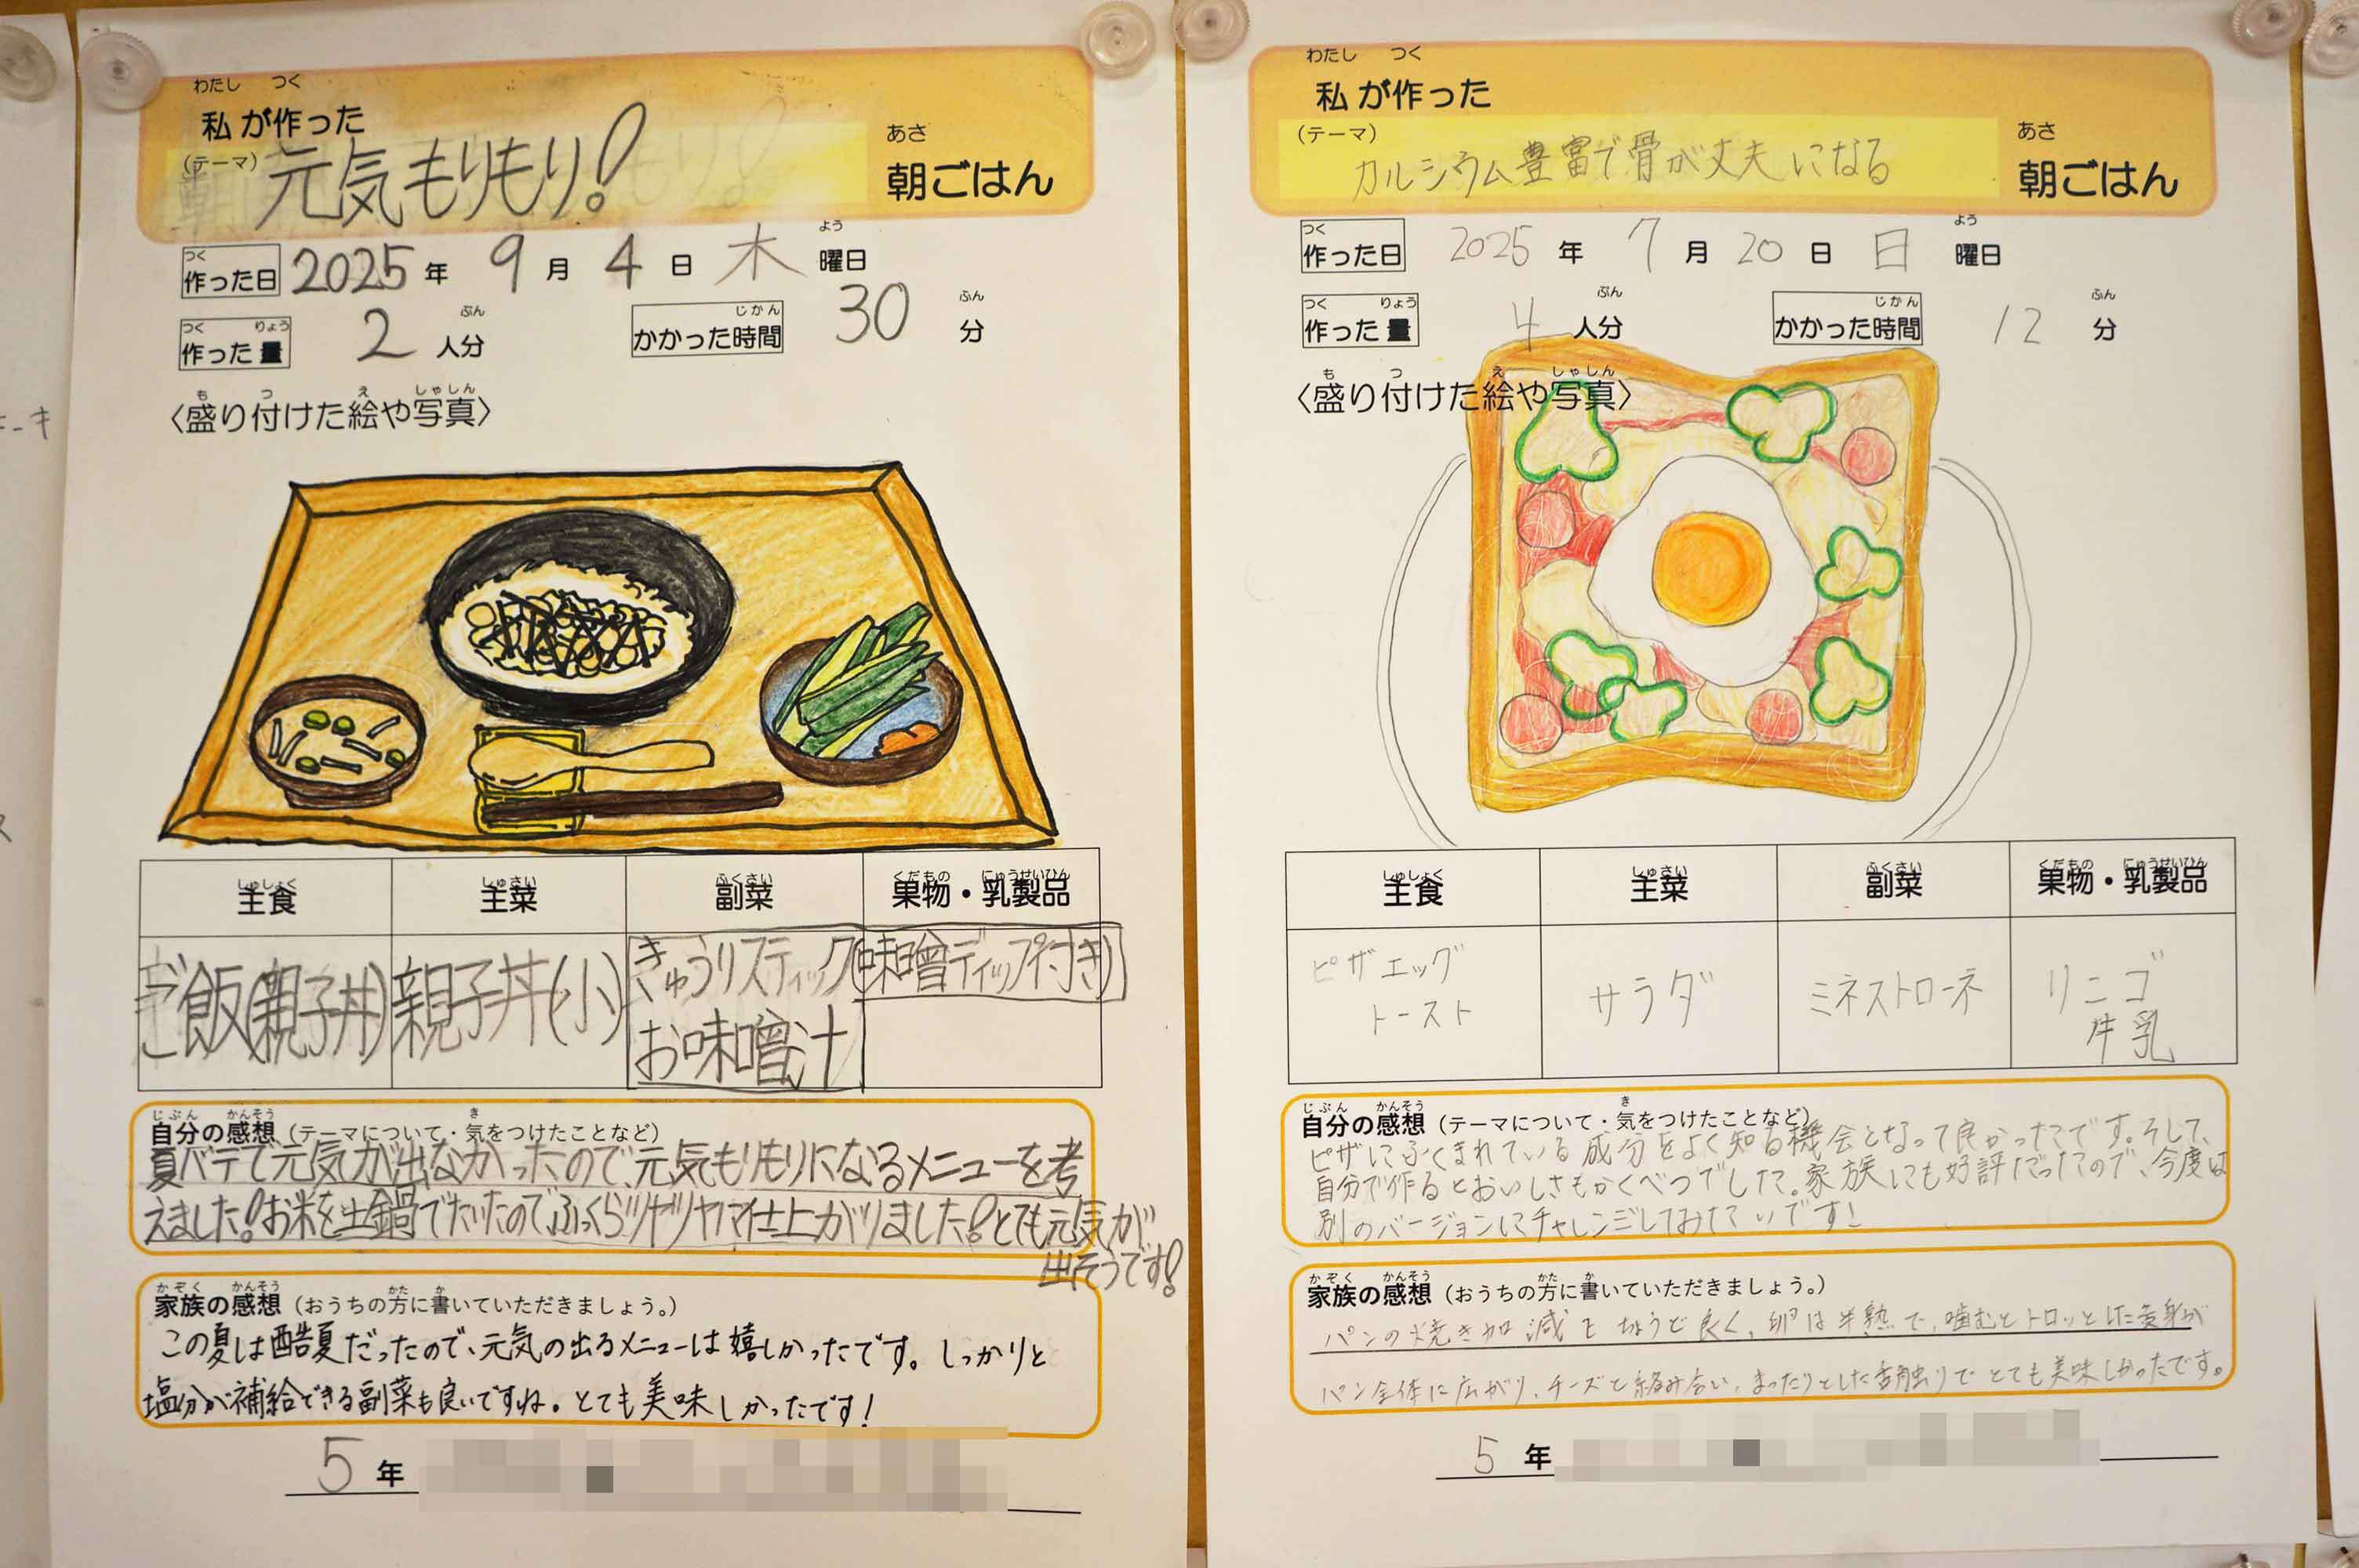 わたし つく
私が作った
(テーマ)
元気もりもり!
あさ
朝ごはん
つく
作った日 2025年 9月 4日 木 よう 曜日
つく りょう
作った量 2 ぶん 人分
じかん
かかった時間 30 ふん 分
も つ え しゃしん
〈盛り付けた絵や写真〉
しゅしょく しゅさい ふくさい くだもの にゅうせいひん
主食 主菜 副菜 果物・乳製品
ご飯(親子丼) 親子丼(小) きゅうりスティック(味噌ディップ付き)
お味噌汁
じぶん かんそう き
自分の感想(テーマについて・気をつけたことなど)
夏バテで元気が出なかったので、元気もりもりになるメニューを考
えました!お米を土鍋でたいたのでふっくらツヤツヤに仕上がりました!とても元気が
出そうです!
かぞく かんそう かた か
家族の感想(おうちの方に書いていただきましょう。)
この夏は酷夏だったので、元気の出るメニューは嬉しかったです。しっかりと
塩分が補給できる副菜も良いですね。とても美味しかったです!
5年
わたし つく
私が作った
(テーマ)
カルシウム豊富で骨が丈夫になる
あさ
朝ごはん
つく
作った日 2025年 7月 20日 日 よう 曜日
つく りょう
作った量 4 ぶん 人分
じかん
かかった時間 12 ふん 分
も つ え しゃしん
〈盛り付けた絵や写真〉
しゅしょく しゅさい ふくさい くだもの にゅうせいひん
主食 主菜 副菜 果物・乳製品
ピザエッグ
トースト
サラダ
ミネストローネ
リンゴ
牛乳
じぶん かんそう き
自分の感想(テーマについて・気をつけたことなど)
ピザにふくまれている成分をよく知る機会となって良かったです。そして、
自分で作るとおいしさもかくべつでした。家族にも好評だったので、今度は
別のバージョンにチャレンジしてみたいです!
かぞく かんそう かた か
家族の感想(おうちの方に書いていただきましょう。)
パンの焼き加減もちょうど良く、卵は半熟で、噛むとトロッとした黄身が
パン全体に広がり、チーズと絡み合い、まったりとした舌触りでとても美味しかったです。
5年